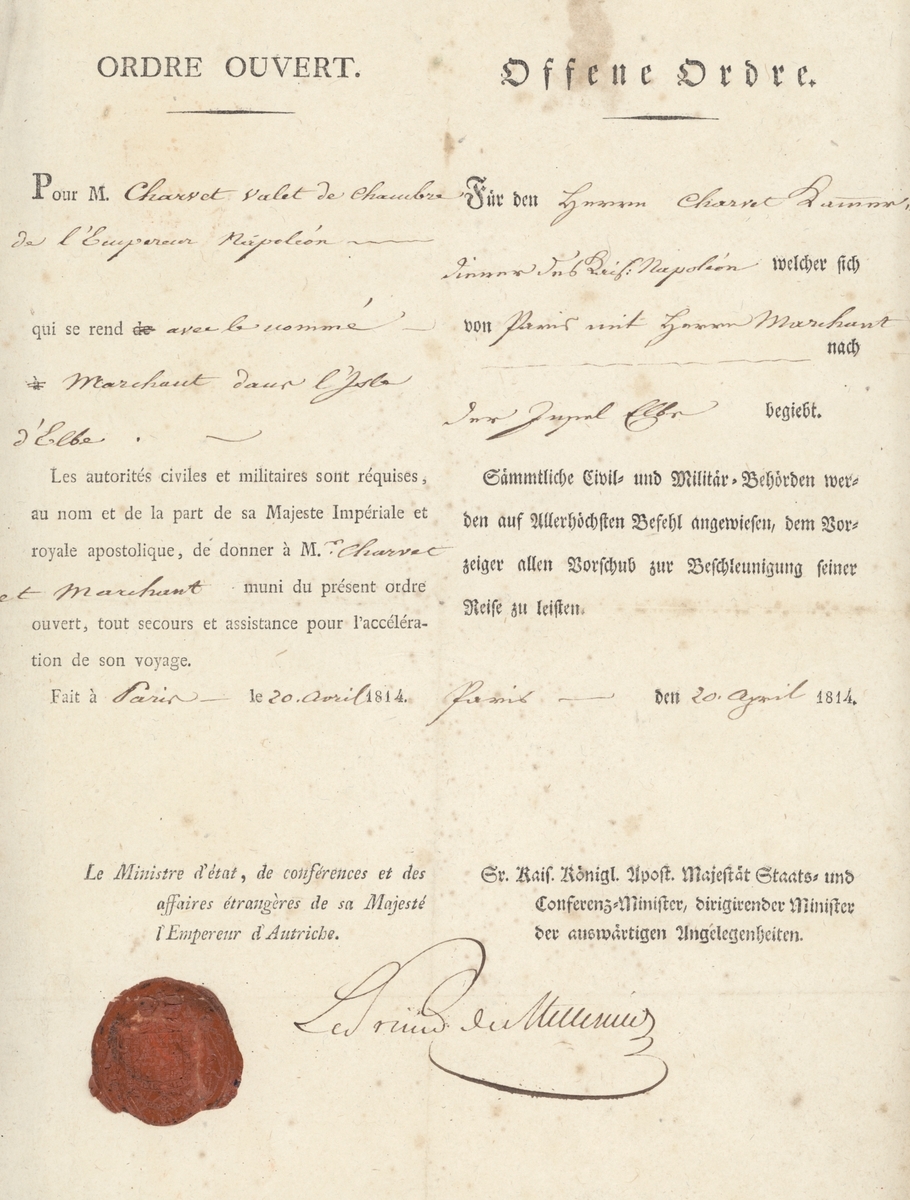 ORDRE OUVERT.
Pour M. Charvet valet de chambre
de l'Empereur Napoléon
qui se rend de avec le nommé
à Marchant dans l'Isle
d'Elbe.
Les autorités civiles et militaires sont réquises,
au nom et de la part de sa Majeste Impériale et
royale apostolique, de donner à M.rs Charvet
et Marchant muni du présent ordre
ouvert, tout secours et assistance pour l'accéléra-
tion de son voyage.
Fait à Paris le 20. Avril 1814.
Le Ministre d'état, de conférences et des
affaires étrangères de sa Majesté
l'Empereur d'Autriche.
Offene Ordre.
Für den Herrn Charvet Kammer-
diener des Kais: Napoléon welcher sich
von Paris mit Herrn Marchant
nach
der Insel Elbe begiebt.
Sämmtliche Civil- und Militär-Behörden wer-
den auf Allerhöchsten Befehl angewiesen, dem Vor-
zeiger allen Vorschub zur Beschleunigung seiner
Reise zu leisten.
Paris den 20. April 1814.
Sr. Kais. Königl. Apost. Majestät Staats- und
Conferenz-Minister, dirigirender Minister
der auswärtigen Angelegenheiten.
Le Prince de Metternich